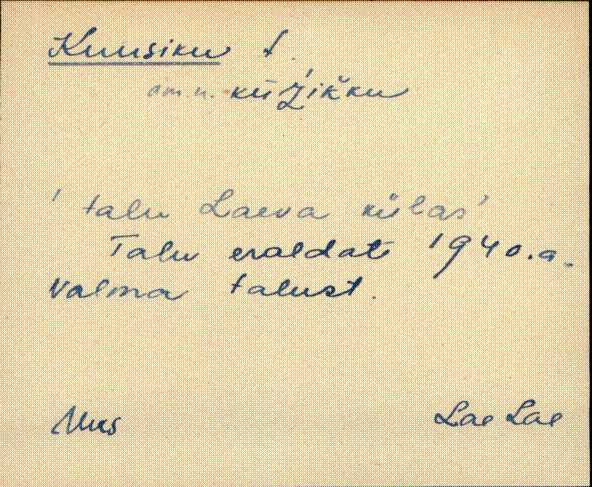 Kuusiku t.
om.n. kūžikku
' talu Laeva külas'
Talu eraldati 1940.a.
Valma talust.
Uus
Lae Lae